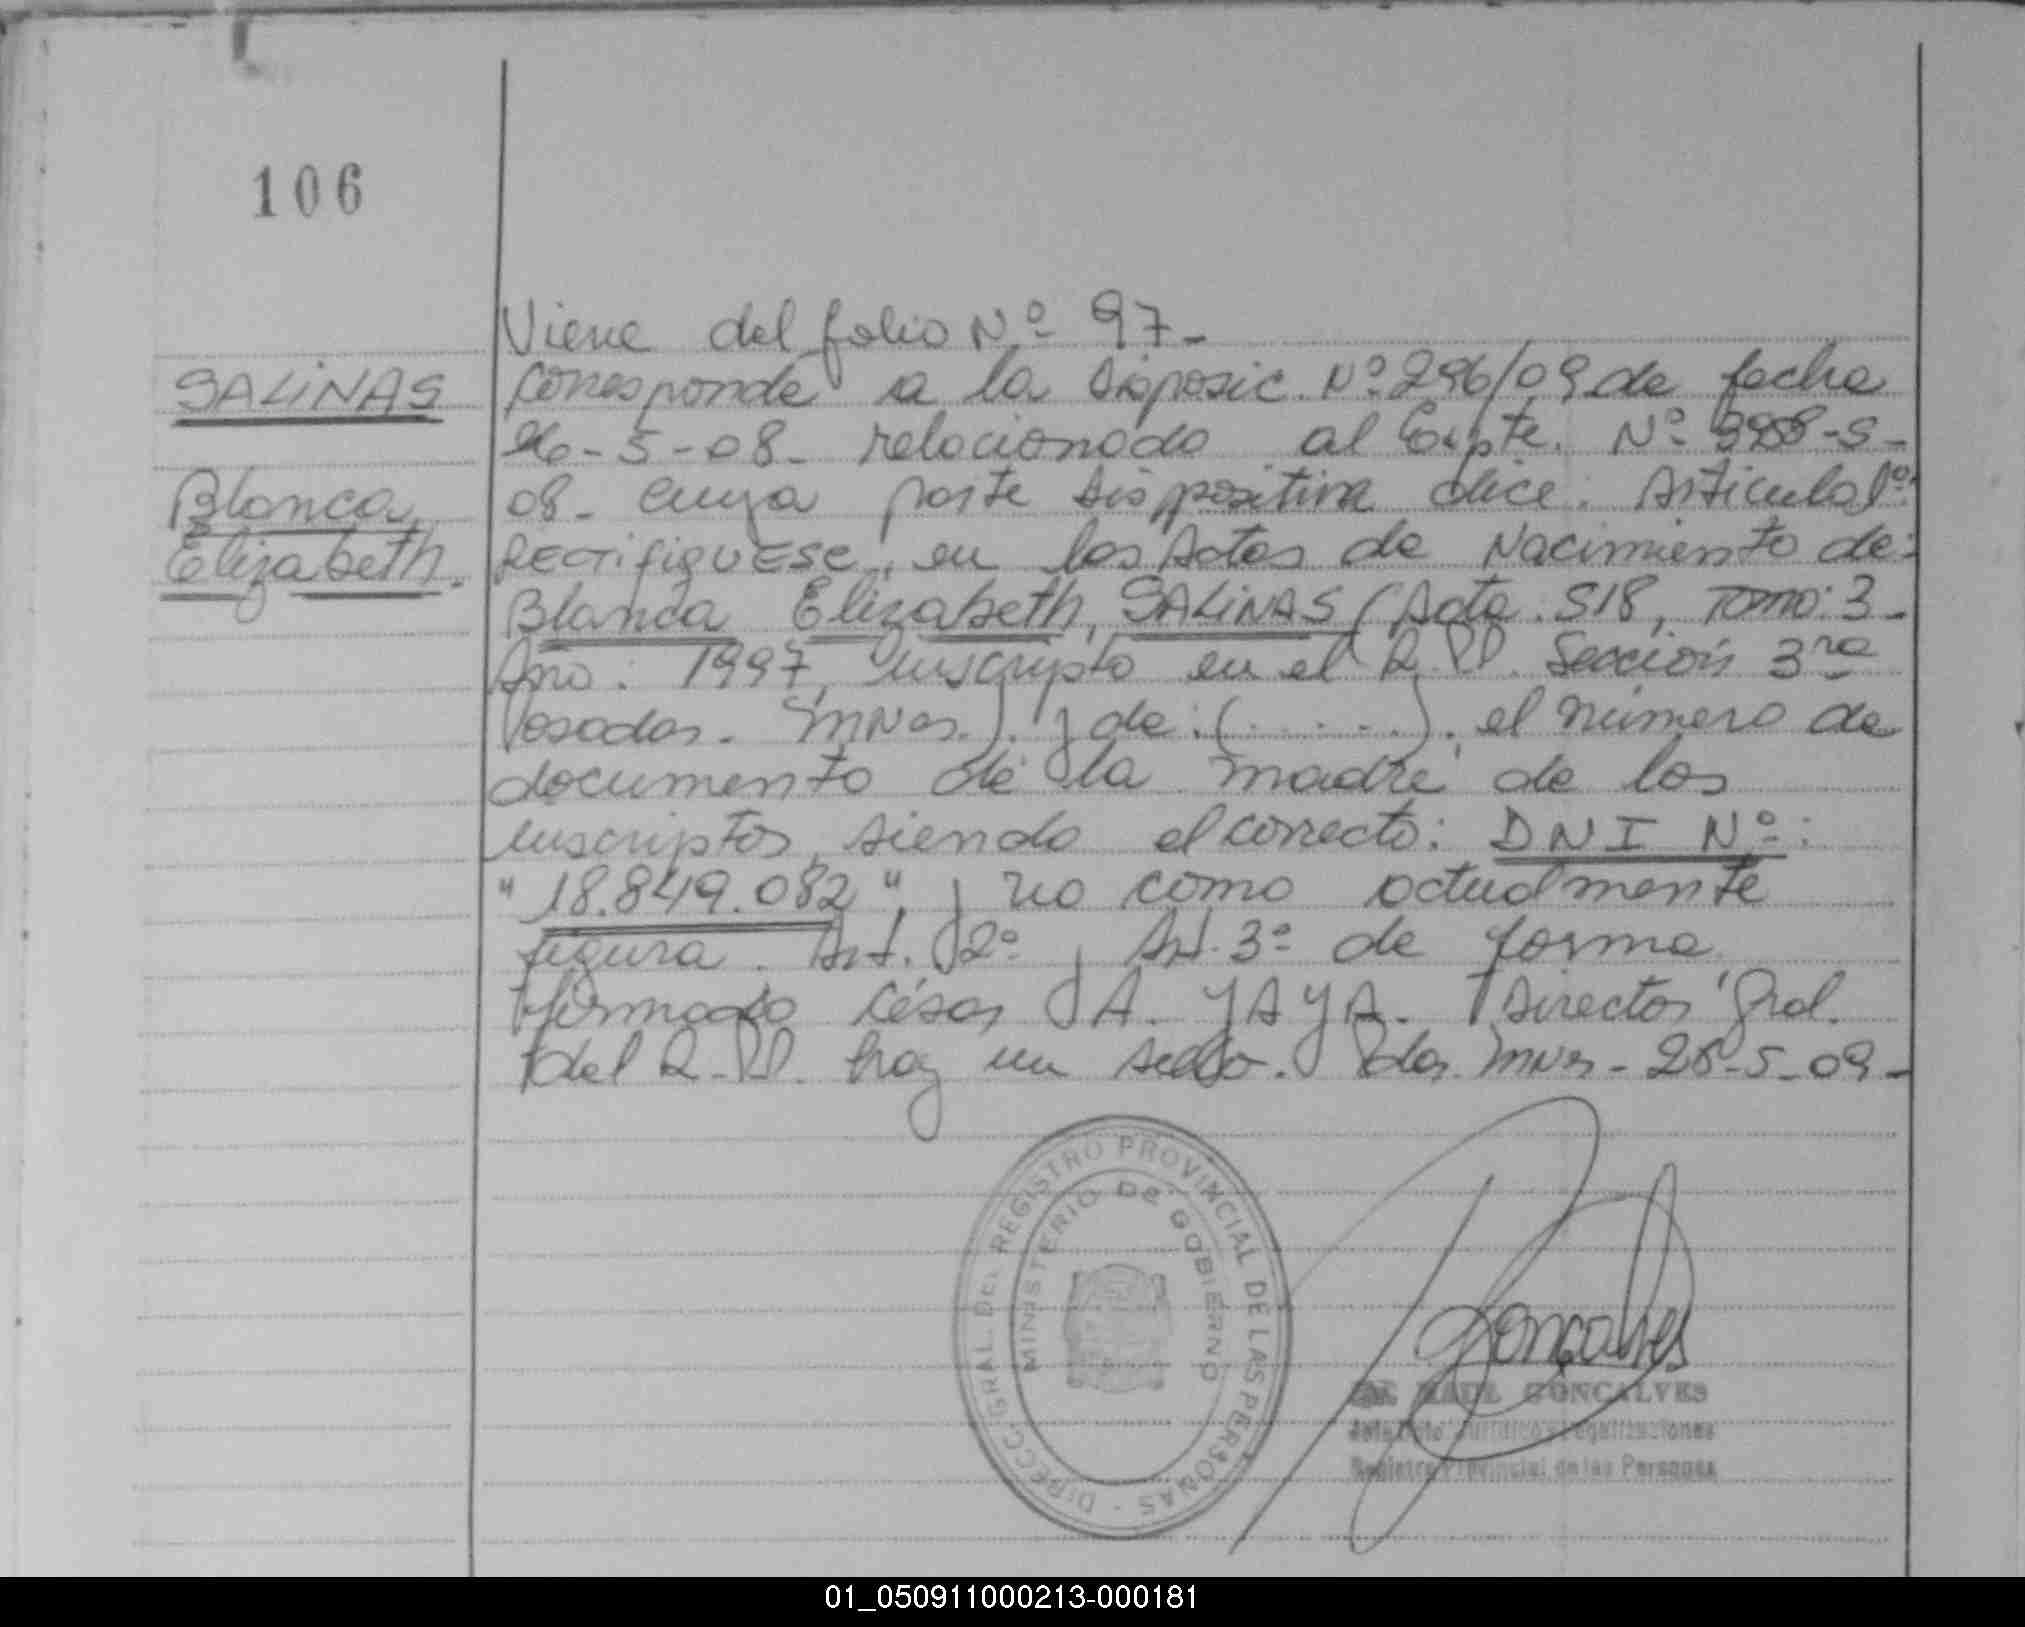 106
Viene del folio Nº 97-
SALINAS
Corresponde a la Disposic. Nº 296/09 de fecha
26-5-08- relacionado al Expte. Nº 3988-S-
Blanca
08- cuya parte dispositiva dice: Articulo 1º:
Elizabeth.
RECTIFIQUESE, en las Actas de Nacimiento de:
Blanca Elizabeth, SALINAS (Acta: 518, Tomo: 3-
Año: 1997, inscripto en el R.PP. Sección 3ra
Posadas. Mnes.). y de: (......). el número de
documento de la madre de los
inscriptos, siendo el correcto: DNI Nº:
"18.849.082", y no como actualmente
figura. Art. 2º y Art. 3º de forma
firmado César A. YAYA. Director Gral.
del R.PP. hay un sello. Pdas. Mnes- 28-5-09-
DIRECC. GRAL. DEL REGISTRO PROVINCIAL DE LAS PERSONAS
MINISTERIO DE GOBIERNO
Goncalves
RAUL GONCALVES
Jefe Dpto. Jurídico y Legalizaciones
Registro Provincial de las Personas
01_050911000213-000181